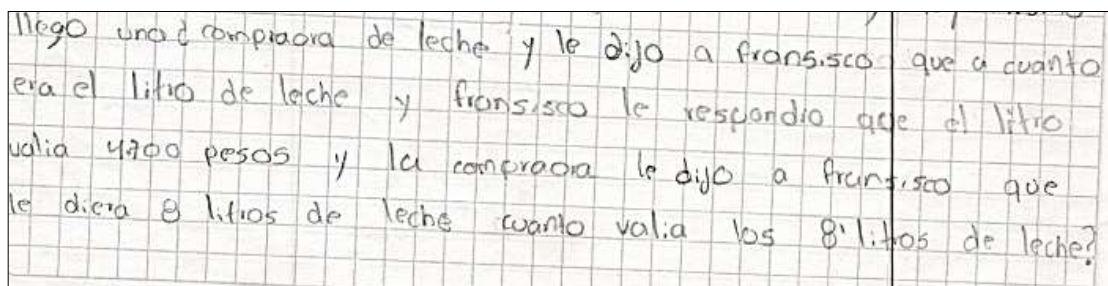 llego una compradora de leche y le dijo a fransisco que a cuanto
era el litro de leche y fransisco le respondio que el litro
valia 4700 pesos y la compraora le dijo a fransisco que
le diera 8 litros de leche cuanto valia los 8 litros de leche?